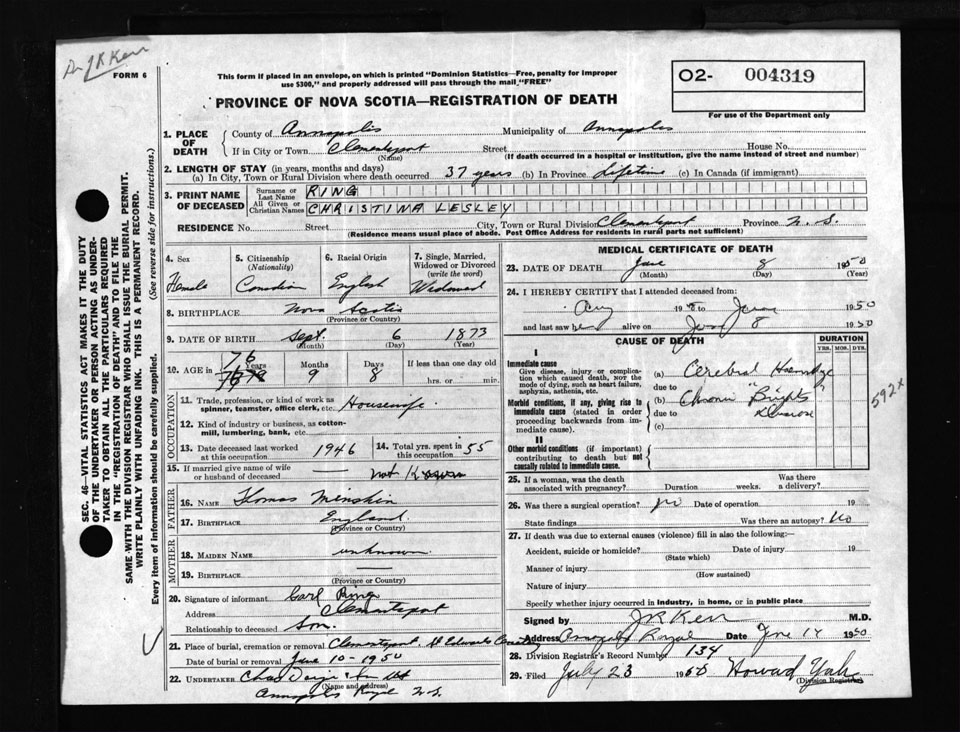 Dr J R Kerr
FORM 6
This form if placed in an envelope, on which is printed "Dominion Statistics—Free, penalty for improper
use $300," and properly addressed will pass through the mail "FREE"
PROVINCE OF NOVA SCOTIA—REGISTRATION OF DEATH
O2- 004319
For use of the Department only
SEC. 46—VITAL STATISTICS ACT MAKES IT THE DUTY
OF THE UNDERTAKER OR PERSON ACTING AS UNDER-
TAKER TO OBTAIN ALL THE PARTICULARS REQUIRED
IN THE "REGISTRATION OF DEATH" AND TO FILE THE
SAME WITH THE DIVISION REGISTRAR WHO SHALL ISSUE THE BURIAL PERMIT.
WRITE PLAINLY WITH UNFADING INK. THIS IS A PERMANENT RECORD.
Every item of information should be carefully supplied. (See reverse side for instructions.)
1. PLACE OF DEATH
County of Annapolis Municipality of Annapolis
If in City or Town Clementsport Street House No.
(Name) (If death occurred in a hospital or institution, give the name instead of street and number)
2. LENGTH OF STAY (in years, months and days)
(a) In City, Town or Rural Division where death occurred 37 years (b) In Province Lifetime (c) In Canada (if immigrant)
3. PRINT NAME OF DECEASED
Surname or Last Name RING
All Given or Christian Names CHRISTINA LESLEY
RESIDENCE No. Street City, Town or Rural Division Clementsport Province N. S.
(Residence means usual place of abode. Post Office Address for residents in rural parts not sufficient)
4. Sex Female
5. Citizenship (Nationality) Canadian
6. Racial Origin English
7. Single, Married, Widowed or Divorced (write the word) Widowed
8. BIRTHPLACE Nova Scotia
(Province or Country)
9. DATE OF BIRTH Sept. 6 1873
(Month) (Day) (Year)
10. AGE in 76 Years Months 9 Days 8 If less than one day old
hrs. or min.
OCCUPATION
11. Trade, profession, or kind of work as spinner, teamster, office clerk, etc. Housewife
12. Kind of industry or business, as cotton-mill, lumbering, bank, etc.
13. Date deceased last worked at this occupation 1946
14. Total yrs. spent in this occupation 55
15. If married give name of wife or husband of deceased — not Known
FATHER
16. NAME Thomas Minskin
17. BIRTHPLACE England
(Province or Country)
MOTHER
18. MAIDEN NAME unknown
19. BIRTHPLACE —
(Province or Country)
20. Signature of informant Carl Ring
Address Clementsport
Relationship to deceased Son.
21. Place of burial, cremation or removal Clementsport, St Edwards Cemetery
Date of burial or removal June 10-1950
22. UNDERTAKER Chas
(Name and address)
Annapolis Royal N. S.
MEDICAL CERTIFICATE OF DEATH
23. DATE OF DEATH June 8 1950
(Month) (Day) (Year)
24. I HEREBY CERTIFY that I attended deceased from:
19 to June 1950
and last saw her alive on June 8 1950
CAUSE OF DEATH
DURATION
YRS. MOS. DYS.
I
Immediate cause
Give disease, injury or complication which caused death, not the mode of dying, such as heart failure, asphyxia, asthenia, etc.
(a) Cerebral
due to
Morbid conditions, if any, giving rise to immediate cause (stated in order proceeding backwards from immediate cause).
(b) Chronic Brights
due to
(c)
592x
II
Other morbid conditions (if important) contributing to death but not causally related to immediate cause.
25. If a woman, was the death associated with pregnancy? Duration weeks. Was there a delivery?
26. Was there a surgical operation? no Date of operation 19
State findings Was there an autopsy? No
27. If death was due to external causes (violence) fill in also the following:—
Accident, suicide or homicide? Date of injury 19
(State which)
Manner of injury
(How sustained)
Nature of injury
Specify whether injury occurred in industry, in home, or in public place
Signed by J R Kerr M.D.
Address Annapolis Royal Date June 14 1950
28. Division Registrar's Record Number 134
29. Filed July 23 1950 Howard
(Division Registrar)